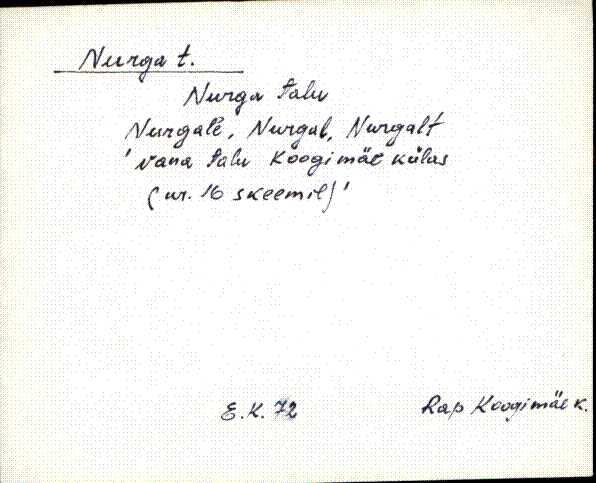 Nurga t.
Nurga talu
Nurgale, Nurgal, Nurgalt
'vana talu Koogimäe külas
(nr. 16 skeemil)'
E.K. 72
Rap Koogimäe k.